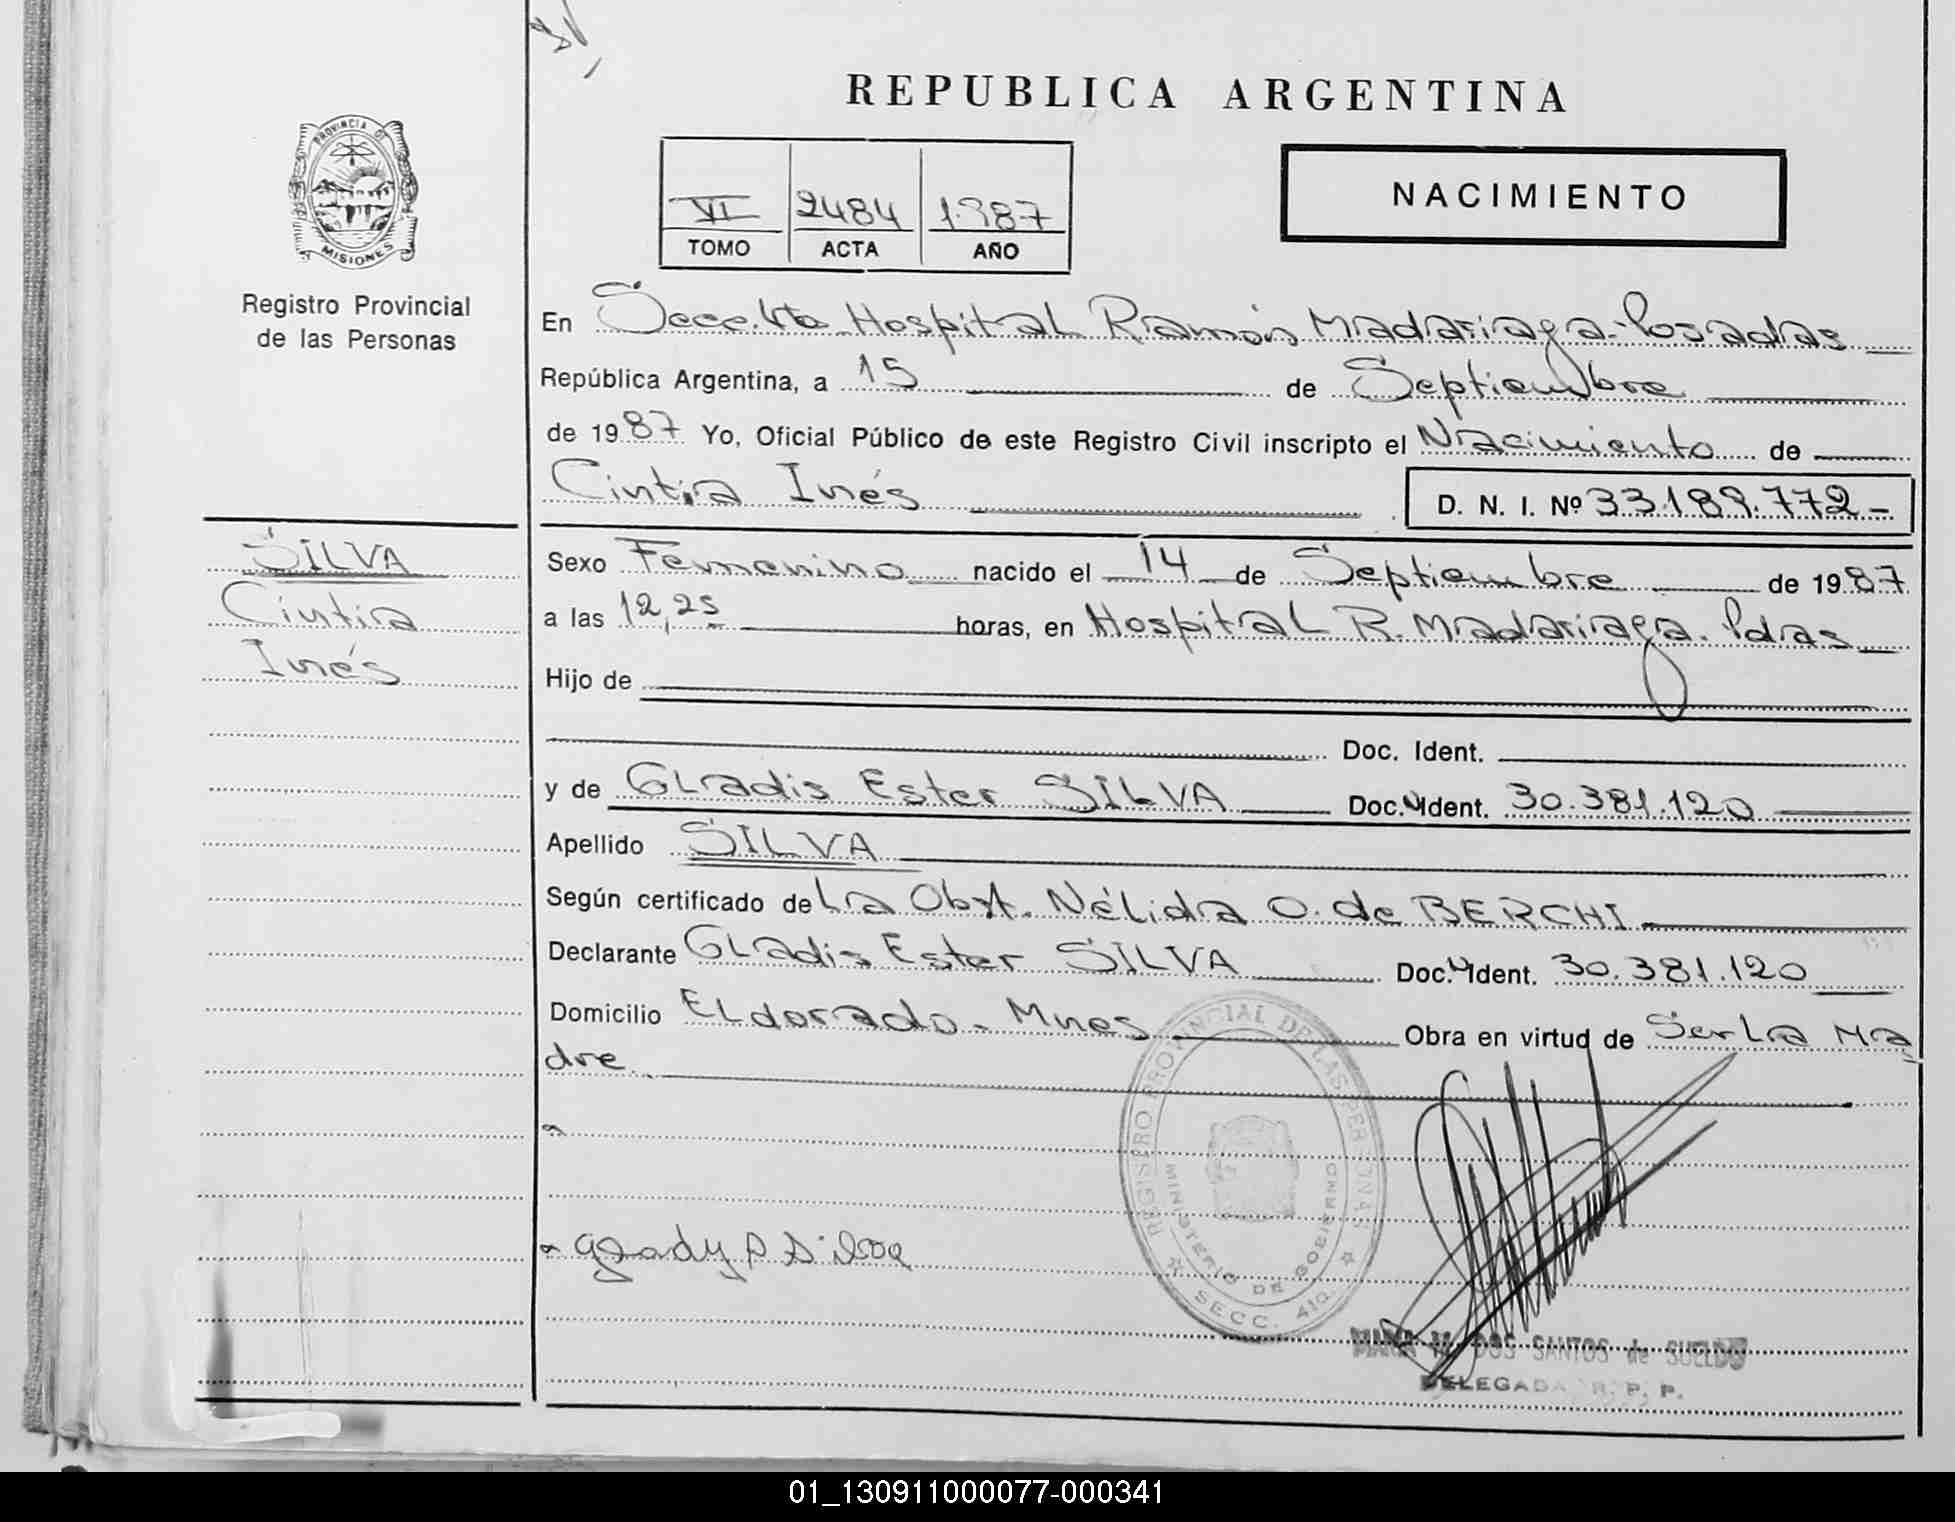 REPUBLICA ARGENTINA
PROVINCIA DE
MISIONES
Registro Provincial
de las Personas
VI 2484 1987
TOMO ACTA AÑO
NACIMIENTO
En Hospital Ramón Madariaga-Posadas
República Argentina, a 15 de Septiembre
de 1987 Yo, Oficial Público de este Registro Civil inscripto el Nacimiento de
Cintia Inés D. N. I. Nº 33.189.772-
SILVA
Cintia
Inés
Sexo Femenino nacido el 14 de Septiembre de 1987
a las 12,25 horas, en Hospital R. Madariaga. Pdas
Hijo de
Doc. Ident.
y de Gladis Ester SILVA Doc. Ident. 30.381.120
Apellido SILVA
Según certificado de La Obst. Nélida O. de BERCHI
Declarante Gladis Ester SILVA Doc. Ident. 30.381.120
Domicilio ELdorado - Mnes Obra en virtud de Ser La Ma
dre.
REGISTRO PROVINCIAL DE LAS PERSONAS
MINISTERIO DE GOBIERNO
SECC. 4ta.
gladys Silva
MARIA DOS SANTOS de SUELDO
DELEGADA R. P. P.
01_130911000077-000341